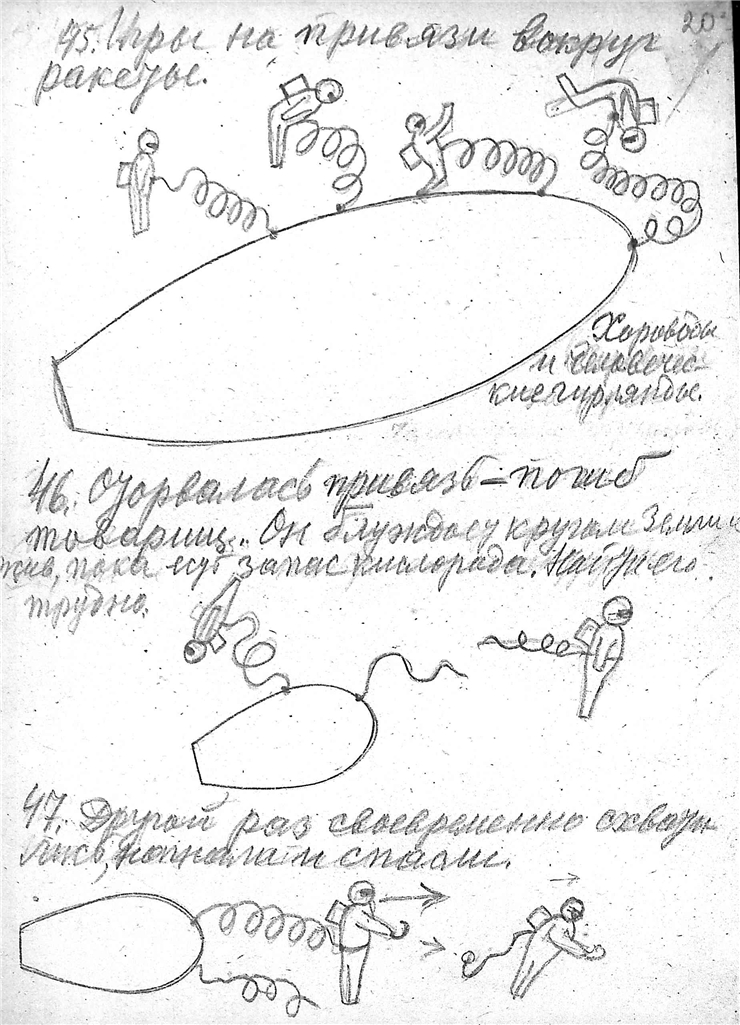 20
45. Игры на привязи вокруг
ракеты.
Хороводы
и человечес-
кие гирлянды.
46. Оторвалась привязь = погиб
товарищ.. Он блуждает кругом Земли и
жив, пока есть запас кислорода. Найти его
трудно.
47. Другой раз своевременно схвати-
лись, нагнали и спасли.